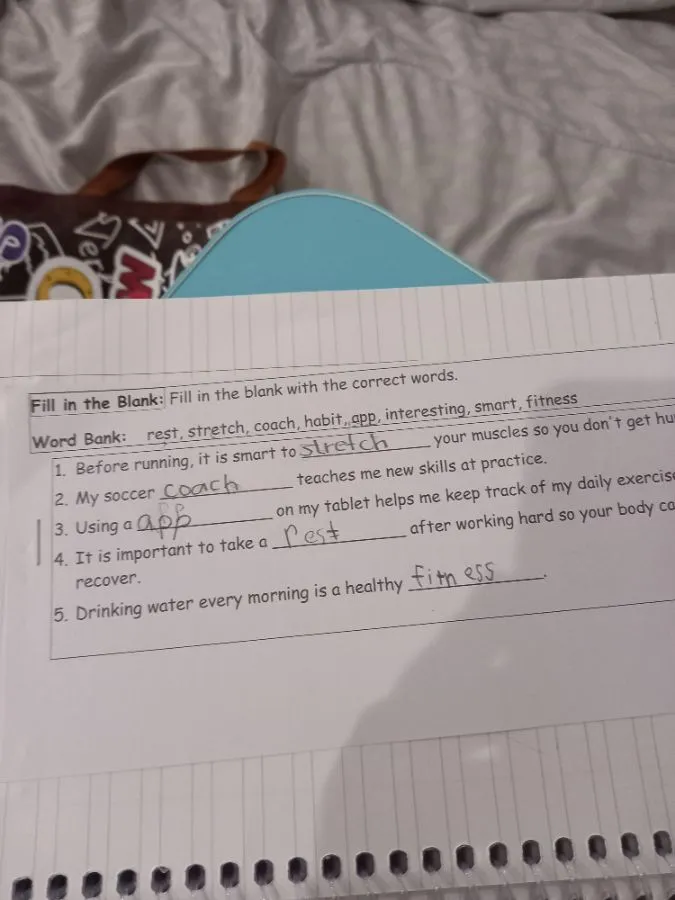 Fill in the Blank: Fill in the blank with the correct words.
Word Bank: rest, stretch, coach, habit, app, interesting, smart, fitness
1. Before running, it is smart to stretch your muscles so you don't get
2. My soccer coach teaches me new skills at practice.
3. Using a app on my tablet helps me keep track of my daily
4. It is important to take a rest after working hard so your body
recover.
5. Drinking water every morning is a healthy fitness.